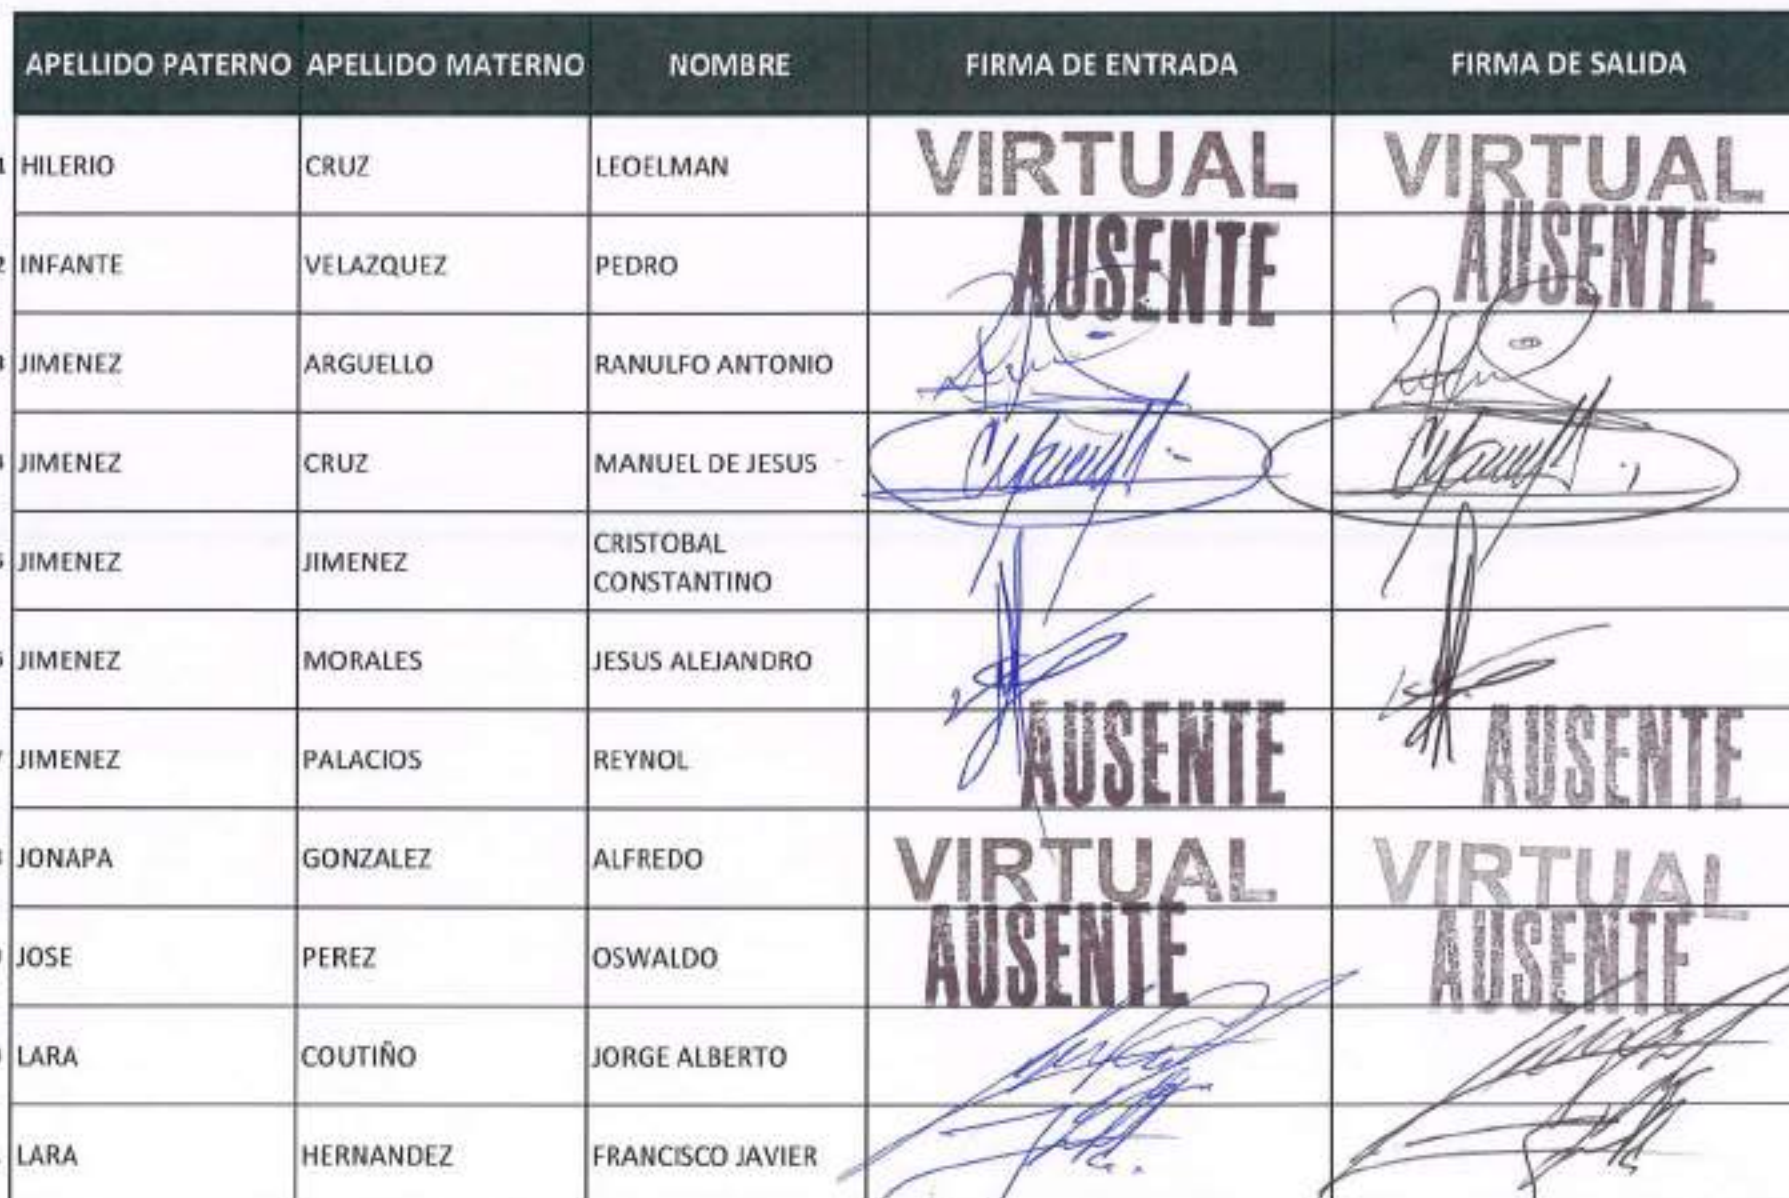 APELLIDO PATERNO APELLIDO MATERNO NOMBRE FIRMA DE ENTRADA FIRMA DE SALIDA
1 HILERIO CRUZ LEOELMAN VIRTUAL VIRTUAL
2 INFANTE VELAZQUEZ PEDRO AUSENTE AUSENTE
JIMENEZ ARGUELLO RANULFO ANTONIO
JIMENEZ CRUZ MANUEL DE JESUS
JIMENEZ JIMENEZ CRISTOBAL
CONSTANTINO
JIMENEZ MORALES JESUS ALEJANDRO
JIMENEZ PALACIOS REYNOL AUSENTE AUSENTE
JONAPA GONZALEZ ALFREDO VIRTUAL VIRTUAL
JOSE PEREZ OSWALDO AUSENTE AUSENTE
LARA COUTIÑO JORGE ALBERTO
LARA HERNANDEZ FRANCISCO JAVIER